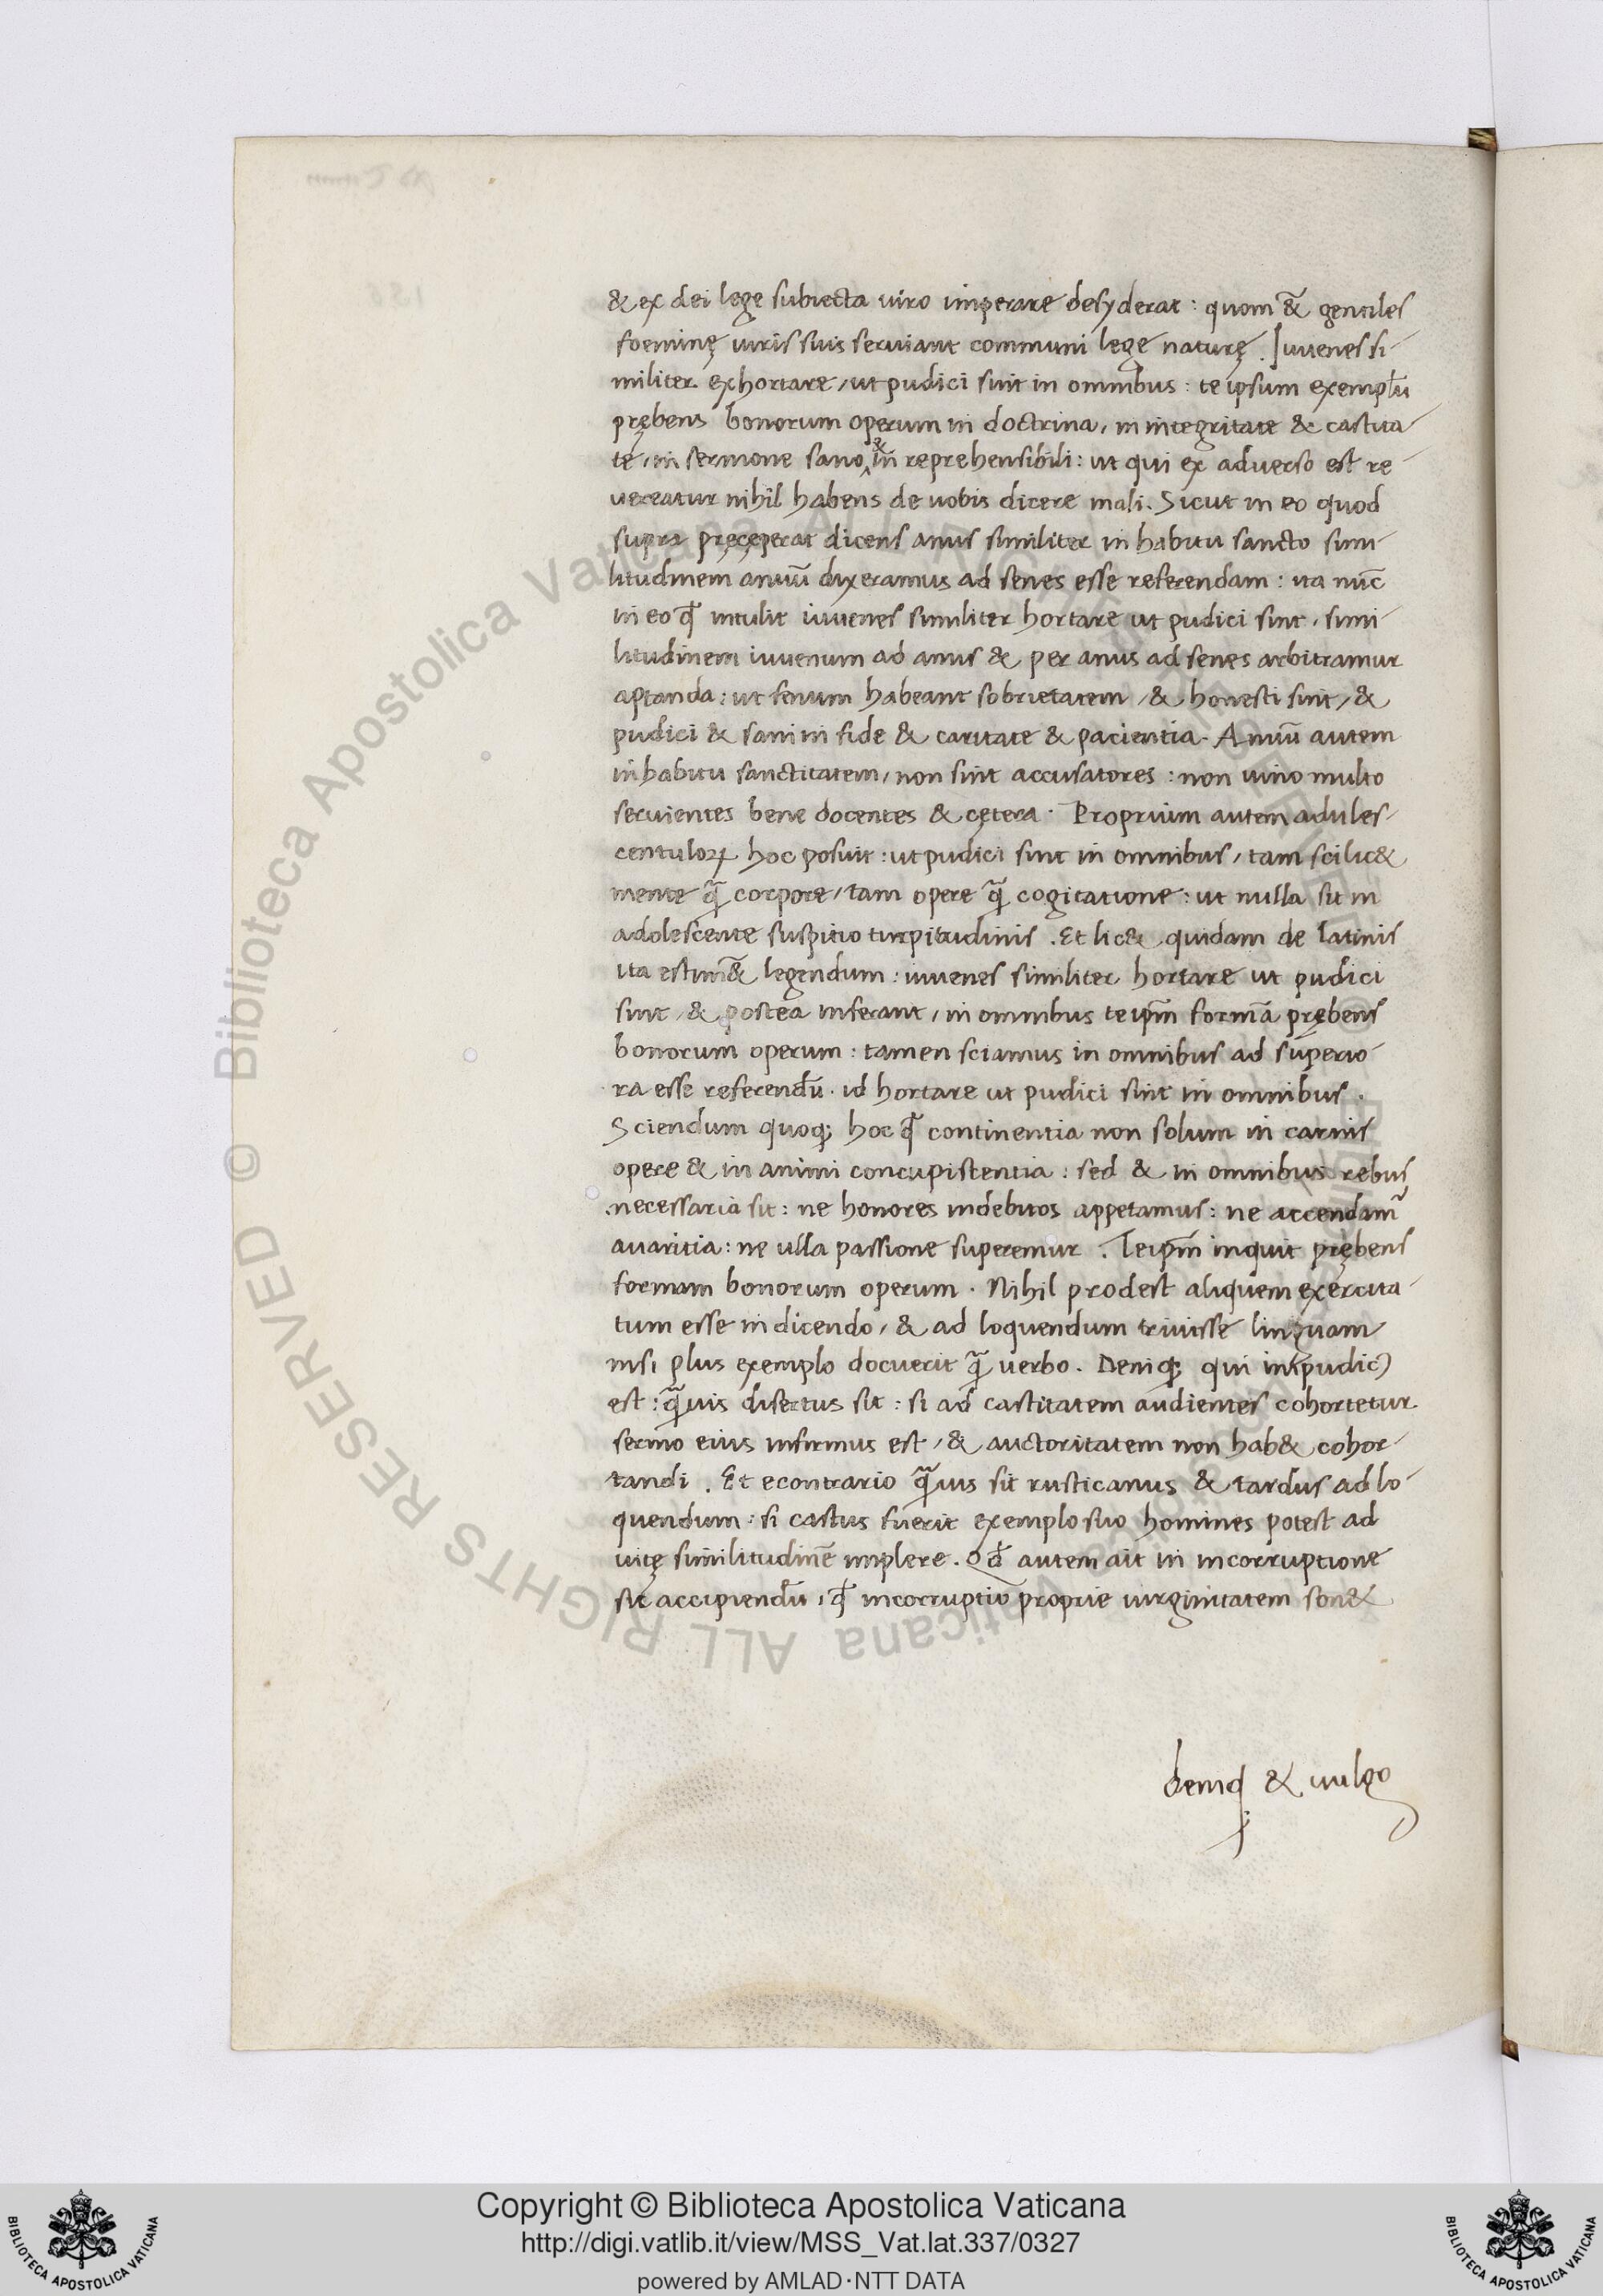 & ex dei lege subiecta uiro imperare desyderat : quom &̃ gentiles
foeminę uiris suis seruiant communi lege naturę . Iuuenes si-
militer exhortare / ut pudici sint in omnibus : te ipsum exemplū
prębens bonorum operum in doctrina / in integritate & castita-
te / in sermone sano & in reprehensibili : ut qui ex aduerso est re-
uereatur nihil habens de uobis dicere mali . Sicut in eo quod
supra pręceperat dicens anus similiter in habitu sancto simi-
litudinem anuū dixeramus ad senes esse referendam : ita nūc
in eo qđ intulit iuuenes similiter hortare ut pudici sint , simi-
litudinem iuuenum ad anus & per anus ad senes arbitramur
aptanda : ut senum habeant sobrietatem / & honesti sint / &
pudici & sani in fide & caritate & pacientia . Anuū autem
in habitu sanctitatem / non sint accusatores : non uino multo
seruientes bene docentes & cętera . Proprium autem adules-
centuloꝝ hoc posuit : ut pudici sint in omnibus / tam scilic&
mente q̃ corpore / tam opere q̃ cogitatione : ut nulla sit in
adolescente suspitio turpitudinis . Et lic& quidam de latinis
ita estim&̃ legendum : iuuenes similiter hortare ut pudici
sint / & postea inferant / in omnibus te ip̄m formā prębens
bonorum operum : tamen sciamus in omnibus ad superio-
ra esse referendū . id hortare ut pudici sint in omnibus .
Sciendum quoq; hoc q̃ continentia non solum in carnis
opere & in animi concupiscentia : sed & in omnibus rebus
necessaria sit : ne honores indebitos appetamus : ne accendam̃
auaritia : ne ulla passione superemur . Te ip̄m inquit prębens
formam bonorum operum . Nihil prodest aliquem exercita-
tum esse in dicendo / & ad loquendum triuisse linguam
nisi plus exemplo docuerit q̃ uerbo . Deniq; qui inpudicꝰ
est : q̃uis disertus sit : si ad castitatem audientes cohortetur
sermo eius infirmus est / & auctoritatem non hab& cohor-
tandi . Et econtrario q̃uis sit rusticanus & tardus ad lo-
quendum : si castus fuerit exemplo suo homines potest ad
uitę similitudinē implere . Qđ autem ait in incorruptione
sit accipiendū , qđ incorruptio proprie uirginitatem son&
deniq; & uulgo
Copyright © Biblioteca Apostolica Vaticana
http://digi.vatlib.it/view/MSS_Vat.lat.337/0327
powered by AMLAD·NTT DATA
BIBLIOTECA APOSTOLICA VATICANA
BIBLIOTECA APOSTOLICA VATICANA
© Biblioteca Apostolica Vaticana ALL RIGHTS RESERVED